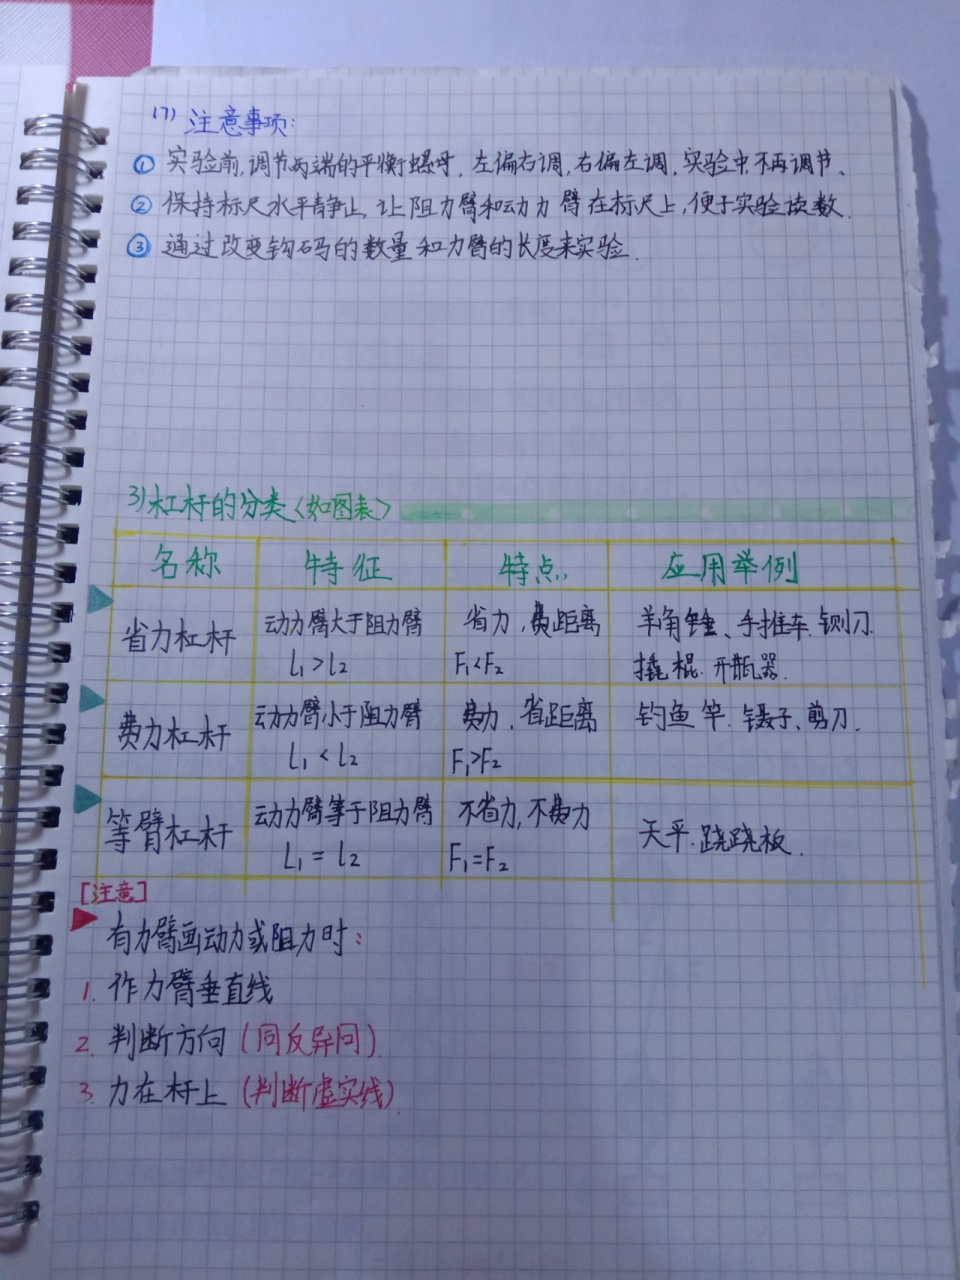 (7) 注意事项:
① 实验前,调节两端的平衡螺母,左偏右调,右偏左调,实验中不再调节、
② 保持标尺水平静止,让阻力臂和动力臂在标尺上,便于实验读数.
③ 通过改变钩码的数量和力臂的长度来实验.
3)杠杆的分类〈如图表〉
名称 特征 特点 应用举例
省力杠杆 动力臂大于阻力臂 省力,费距离 羊角锤、手推车.铡刀.
L₁>L₂ F₁<F₂ 撬棍.开瓶器.
费力杠杆 动力臂小于阻力臂 费力、省距离 钓鱼竿.镊子、剪刀.
L₁<L₂ F₁>F₂
等臂杠杆 动力臂等于阻力臂 不省力,不费力 天平.跷跷板.
L₁=L₂ F₁=F₂
[注意]
有力臂画动力或阻力时:
1. 作力臂垂直线
2. 判断方向(同反异同)
3. 力在杆上(判断虚实线)